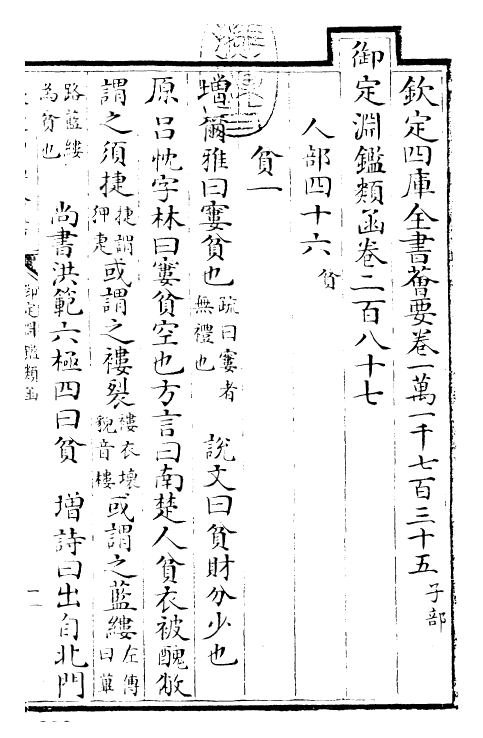 欽定四庫全書薈要卷一萬一千七百三十五 子部
御定淵鑑類函卷二百八十七
人部四十六 貧
貧一
增爾雅曰窶貧也 疏曰窶者無禮也 說文曰貧財分少也
原呂忱字林曰窶貧空也方言曰南楚人貧衣被醜敝
謂之須捷 捷謂狎疌 或謂之褸裂 褸衣壞貌音樓 或謂之藍縷 左傳曰蓽
路藍縷為貧也 尚書洪範六極四曰貧 增詩曰出自北門
御定淵鑑類函
一